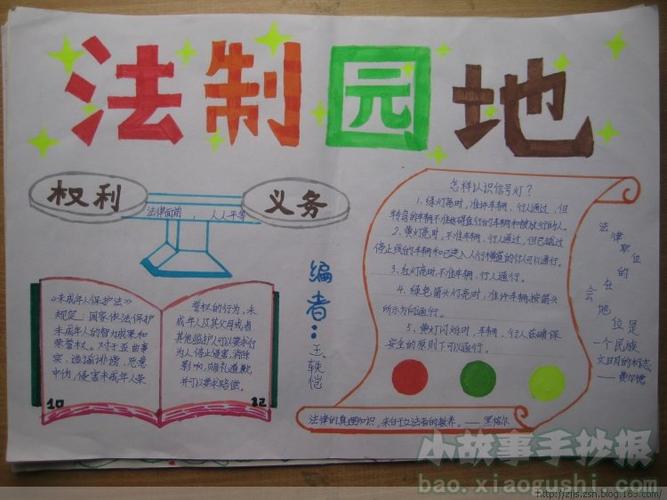 法制园地
权利
义务
法律面前，人人平等
《未成年人保护法》
规定，国家依法保护
未成年人的智力成果和
荣誉权。对于歪曲事
实、造谣诽谤、恶意
中伤，侵害未成年人荣
誉权的行为，未
成年人及其父母或者
其他监护人可以要求行
为人停止侵害，消除
影响，赔礼道歉，
并可以要求赔偿。
10
12
编者：王轶恺
怎样认识信号灯？
1、绿灯亮时，准许车辆、行人通过，但
转弯的车辆不准妨碍直行的车辆和被放行的行人。
2、黄灯亮时，不准车辆、行人通过，但已越过
停止线的车辆和已进入人行横道的行人可以通行。
3、红灯亮时，不准车辆、行人通行。
4、绿色箭头灯亮时，准许车辆按箭头
所示方向通行。
5、黄灯闪烁时，车辆、行人在确保
安全的原则下可以通行。
法律的真理知识，来自于立法者的教养。——黑格尔
法律职位的
在社会地位是
一个民族
文明的标志。
——费尔德
小故事手抄报
bao.xiaogushi.com
http://zjjs.zsn.blog.163.com/